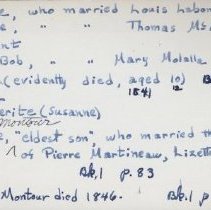 e, who married Louis Labon
e, " " Thomas Mc
nt
Bob, " " Mary Molalla
(evidently died, aged 10) B
1841 12
erite (Susanne)
Montour
e, "eldest son", who married th
of Pierre Martineau, Lizett
Bk.1 p.83
Montour died 1846. Bk.1 p